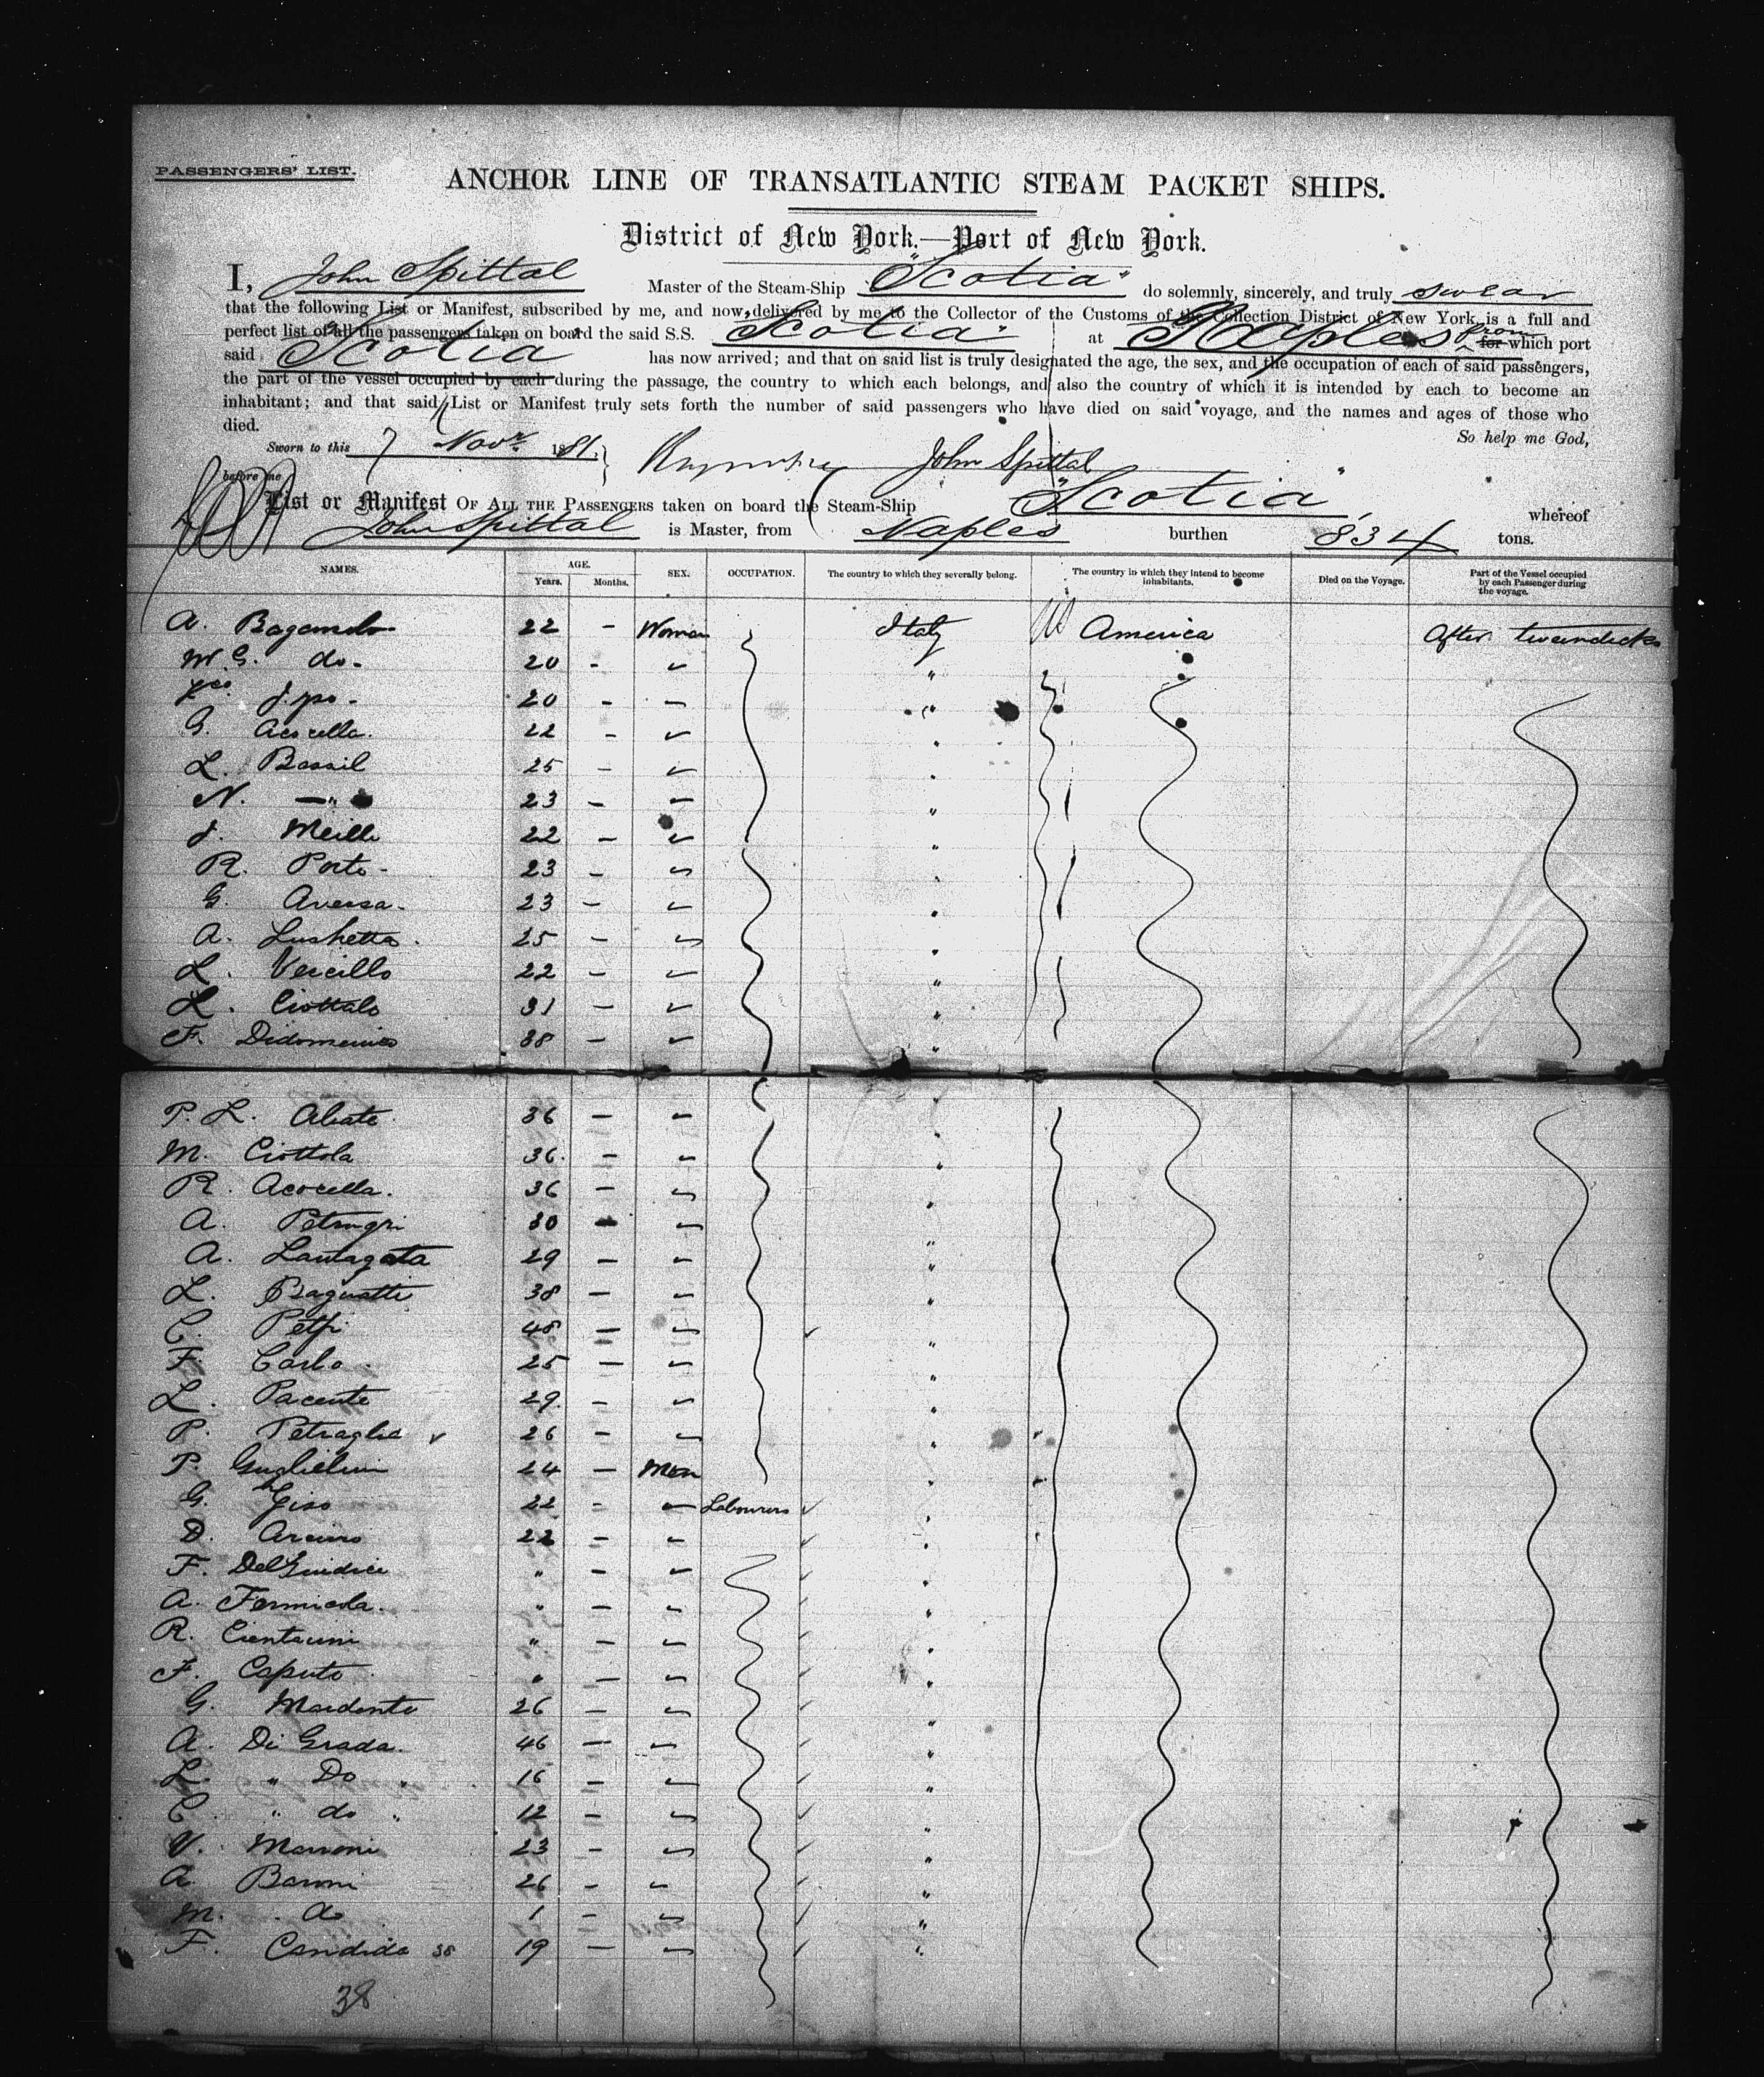 PASSENGERS' LIST.
ANCHOR LINE OF TRANSATLANTIC STEAM PACKET SHIPS.
District of New York.—Port of New York.
I, John Spittal Master of the Steam-Ship "Scotia" do solemnly, sincerely, and truly swear
that the following List or Manifest, subscribed by me, and now delivered by me to the Collector of the Customs of the Collection District of New York, is a full and
perfect list of all the passengers taken on board the said S.S. Scotia at Naples from for which port
said Scotia has now arrived; and that on said list is truly designated the age, the sex, and the occupation of each of said passengers,
the part of the vessel occupied by each during the passage, the country to which each belongs, and also the country of which it is intended by each to become an
inhabitant; and that said List or Manifest truly sets forth the number of said passengers who have died on said voyage, and the names and ages of those who
died.
So help me God,
Sworn to this 7 Novr. 1881. John Spittal
before me
List or Manifest OF ALL THE PASSENGERS taken on board the Steam-Ship "Scotia", whereof
John Spittal is Master, from Naples burthen 834 tons.
NAMES. AGE. Years. Months. SEX. OCCUPATION. The country to which they severally belong. The country in which they intend to become inhabitants. Died on the Voyage. Part of the Vessel occupied by each Passenger during the voyage.
A. 22 - Woman Italy America After tweendecks
M. G. do. 20 - "
20 - "
G. Acocella. 22 - "
L. Bassil 25 - "
N. — " 23 - "
J. Meille 22 - "
R. Porto - 23 - "
G. Aversa. 23 - "
A. Lushetta. 25 - "
L. Vercillo 22 - "
L. Ciottalo 31 - "
F. Didomenico 38 - "
P. L. Abate 36 - "
M. Ciottola 36. - "
R. Acocella. 36 - "
A. 30 - "
A. Lantagata 29 - "
L. 38 - "
C. 48 - "
F. Carlo. 25 - "
L. Pacente 29. - "
P. Petraglia 26 - "
P. Guglielmi 24 - Men "
G. 22 - Labourers "
D. 22 - "
F. Del Guidice " - "
A. Formicola. " - "
R. " - "
F. Caputo " - "
G. Mardente 26 - "
A. Di Grada. 46 - "
L. " Do " 16 - "
C. " do " 12 - "
V. 23 - "
A. Baroni 26 - "
M. do 1 - "
F. Candida 38 19 - "
38